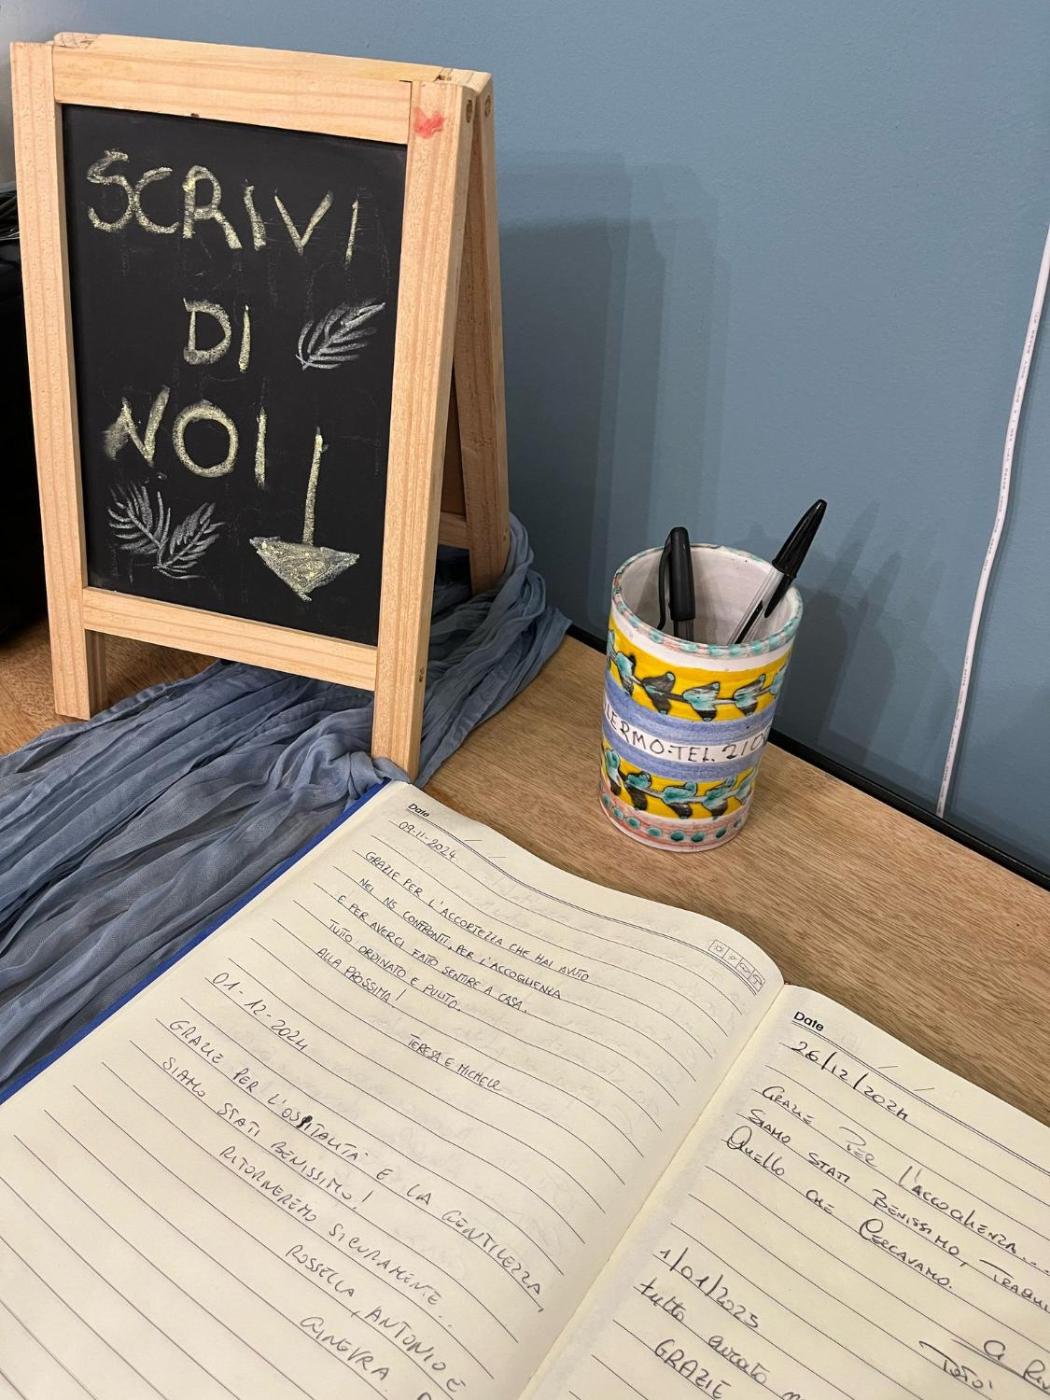 SCRIVI
DI
NOI
ERMO·TEL. 210
Date
09-11-2024
GRAZIE PER L'ACCORTEZZA CHE HAI AVUTO
NEI NS CONFRONTI, PER L'ACCOGLIENZA
E PER AVERCI FATTO SENTIRE A CASA.
TUTTO ORDINATO E PULITO.
ALLA PROSSIMA!
TERESA E MICHELE
01-12-2024
GRAZIE PER L'OSPITALITA' E LA GENTILEZZA,
SIAMO STATI BENISSIMO!
RITORNEREMO SICURAMENTE...
ROSSELLA, ANTONIO E
GINEVRA
Date
26/12/2024
GRAZIE PER l'ACCOGLIENZA...
SIAMO STATI BENISSIMO,
QUELLO CHE CERCAVAMO.
A
1/01/2025
tutto curato
GRAZIE